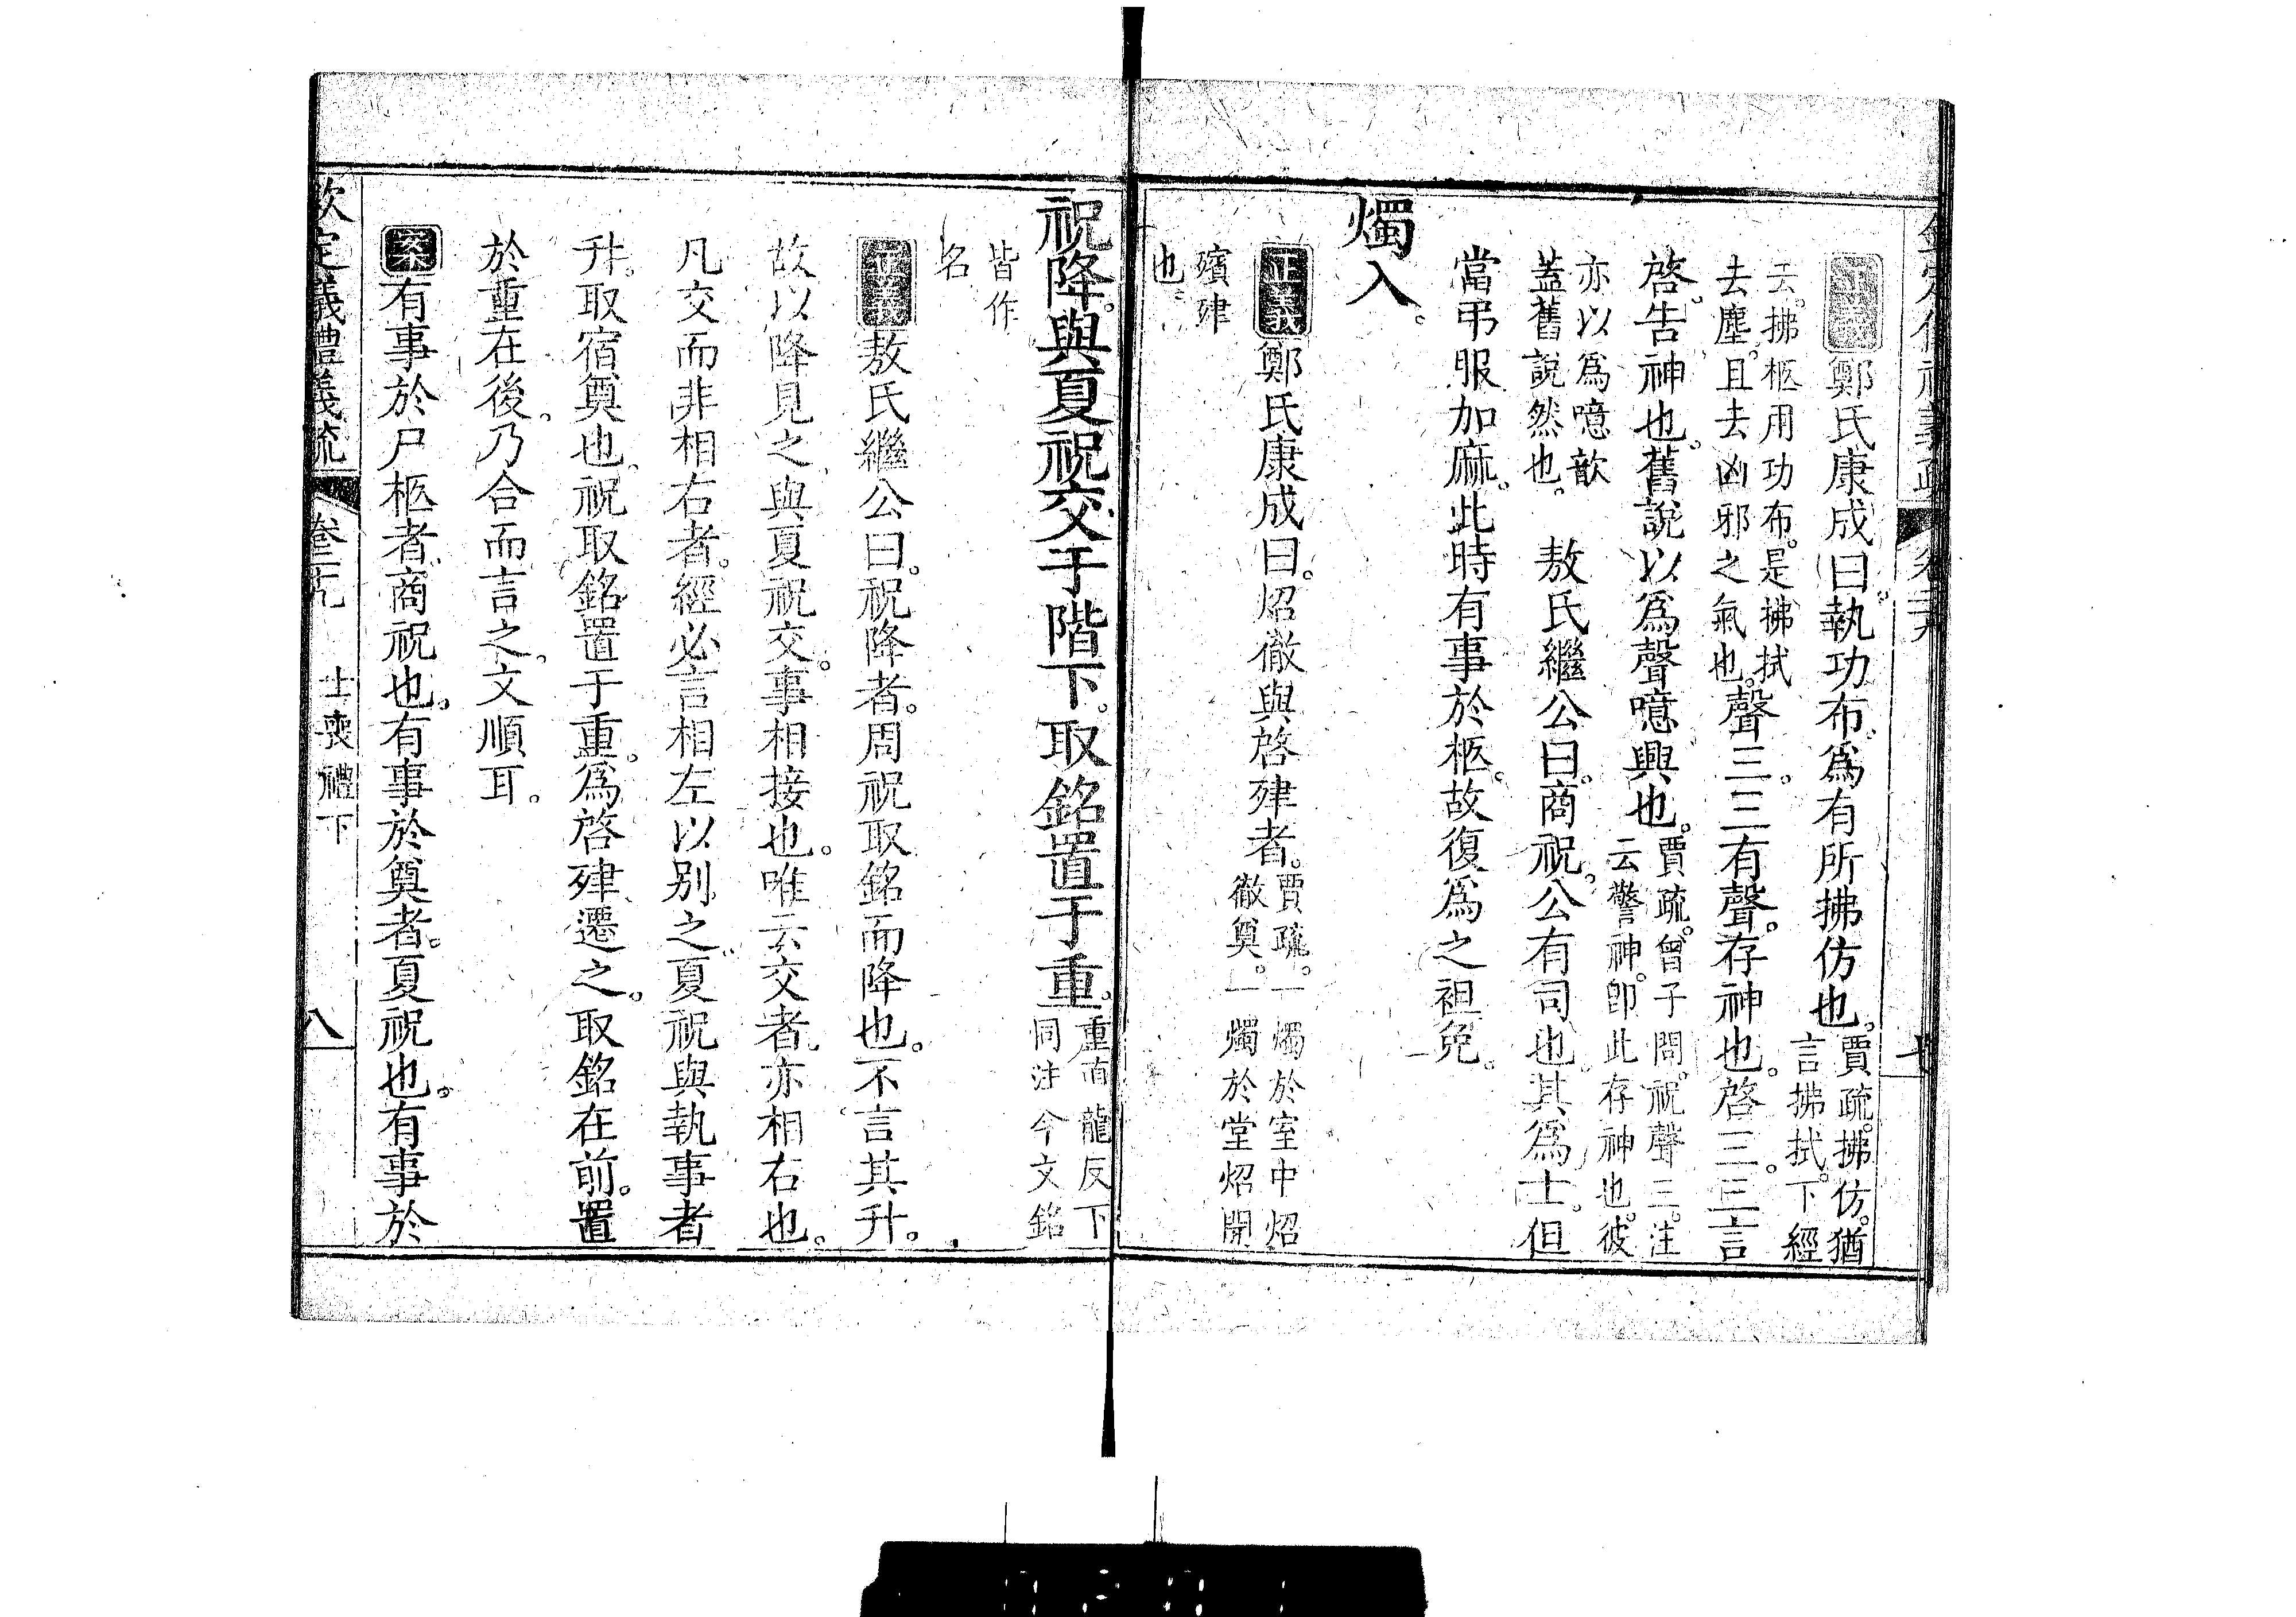 正義鄭氏康成曰。執功布。爲有所拂仿也。賈疏。拂仿。猶言拂拭。下經
云。拂柩用功布。是拂拭去塵。且去凶邪之氣也。聲三。三有聲。存神也。啓三。三言
啓。告神也。舊說以爲聲噫興也。賈疏。曾子問。祝聲三。注云警神。卽此存神也。彼
亦以爲噫歆蓋舊說然也。 敖氏繼公曰。商祝。公有司也。其爲士。但
當弔服加麻。此時有事於柩。故復爲之袒免。
燭入。
正義鄭氏康成曰。炤徹與啓肂者。賈疏。一燭於室中炤徹奠。一燭於堂炤開
殯肂也。
祝降。與夏祝交于階下。取銘置于重。重直龍反下同注今文銘
皆作名
正義敖氏繼公曰。祝降者。周祝取銘而降也。不言其升。
故以降見之。與夏祝交。事相接也。唯云交者。亦相右也。
凡交而非相右者。經必言相左以別之。夏祝與執事者
升。取宿奠也。祝取銘置于重。爲啓肂遷之。取銘在前。置
於重在後。乃合而言之。文順耳。
案有事於尸柩者。商祝也。有事於奠者。夏祝也。有事於
欽定儀禮義疏 卷二十九 士喪禮下 八